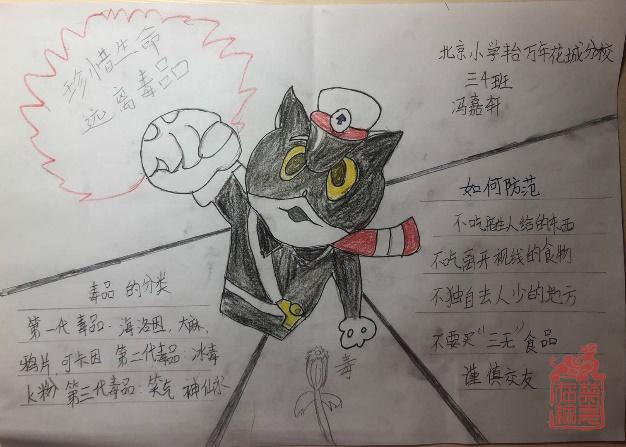 珍惜生命
远离毒品
北京小学丰台万年花城分校
三4班
冯嘉轩
如何防范
不吃陌生人给的东西
不吃离开视线的食物
不独自去人少的地方
不要买“三无”食品
谨慎交友
毒品的分类
第一代毒品·海洛因，大麻、
鸦片 可卡因 第二代毒品·冰毒
k粉 第三代毒品·笑气 神仙水
毒